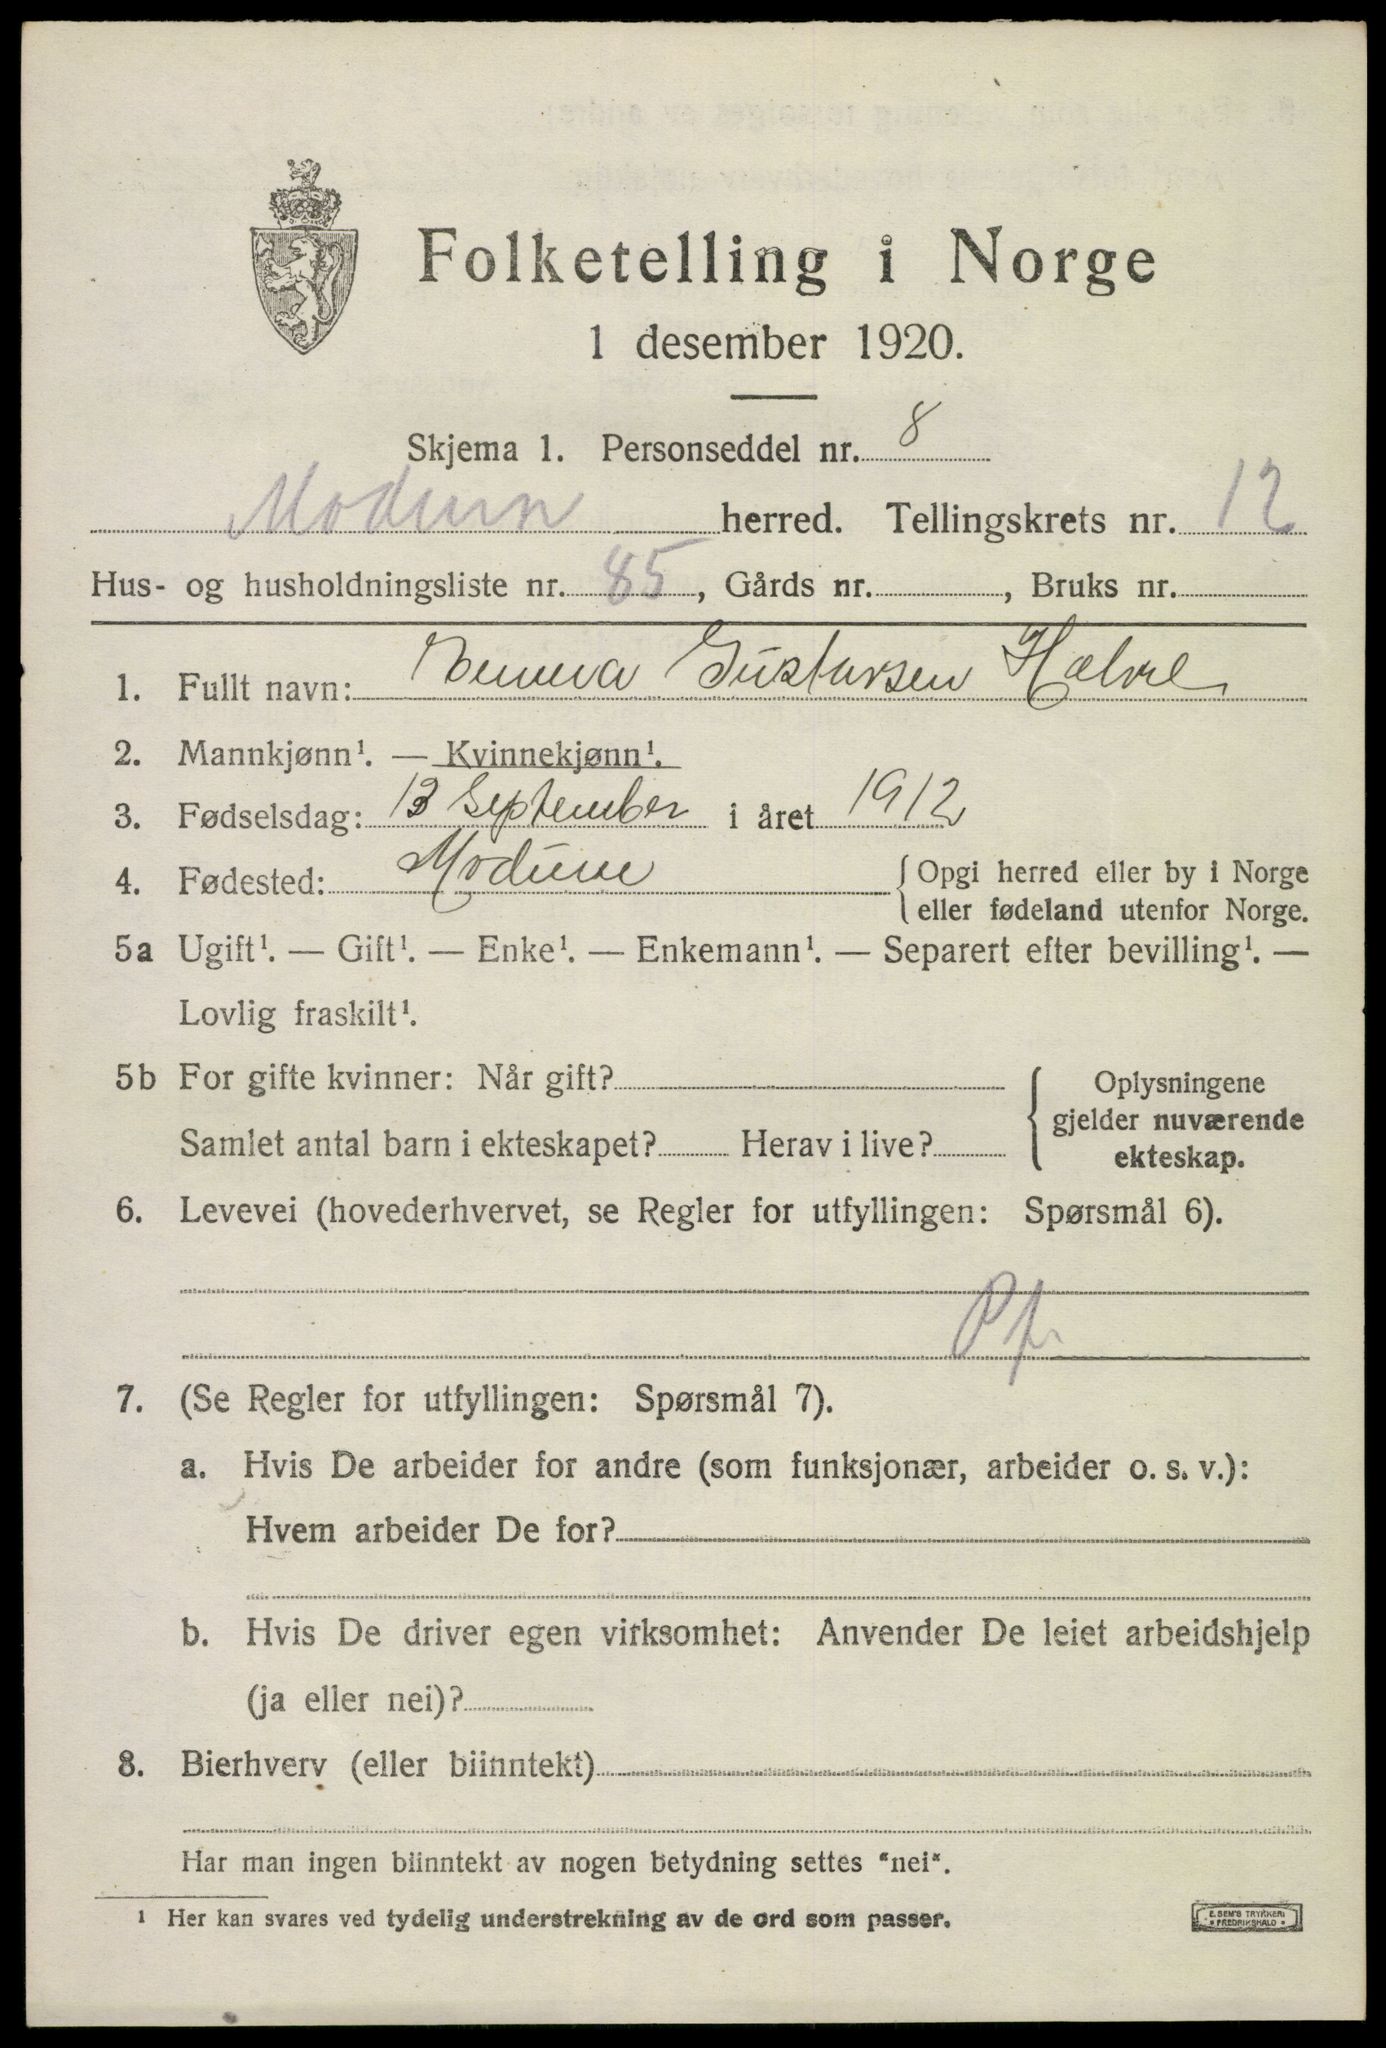 Folketelling i Norge
1 desember 1920.
Skjema 1. Personseddel nr. 8
Modum herred. Tellingskrets nr. 12
Hus- og husholdningsliste nr. 85, Gårds nr. , Bruks nr.
1. Fullt navn: Gustavsen
2. Mannkjønn¹. — Kvinnekjønn¹.
3. Fødselsdag: 13 September i året 1912
4. Fødested: Modum { Opgi herred eller by i Norge
eller fødeland utenfor Norge.
5a Ugift¹. — Gift¹. — Enke¹. — Enkemann¹. — Separert efter bevilling¹. —
Lovlig fraskilt¹.
5b For gifte kvinner: Når gift?
Samlet antal barn i ekteskapet? Herav i live?
{ Oplysningene
gjelder nuværende
ekteskap.
6. Levevei (hovederhvervet, se Regler for utfyllingen: Spørsmål 6).
7. (Se Regler for utfyllingen: Spørsmål 7).
a. Hvis De arbeider for andre (som funksjonær, arbeider o. s. v.):
Hvem arbeider De for?
b. Hvis De driver egen virksomhet: Anvender De leiet arbeidshjelp
(ja eller nei)?
8. Bierhverv (eller biinntekt)
Har man ingen biinntekt av nogen betydning settes "nei".
¹ Her kan svares ved tydelig understrekning av de ord som passer.
E. SEM'S TRYKKERI
FREDRIKSHALD